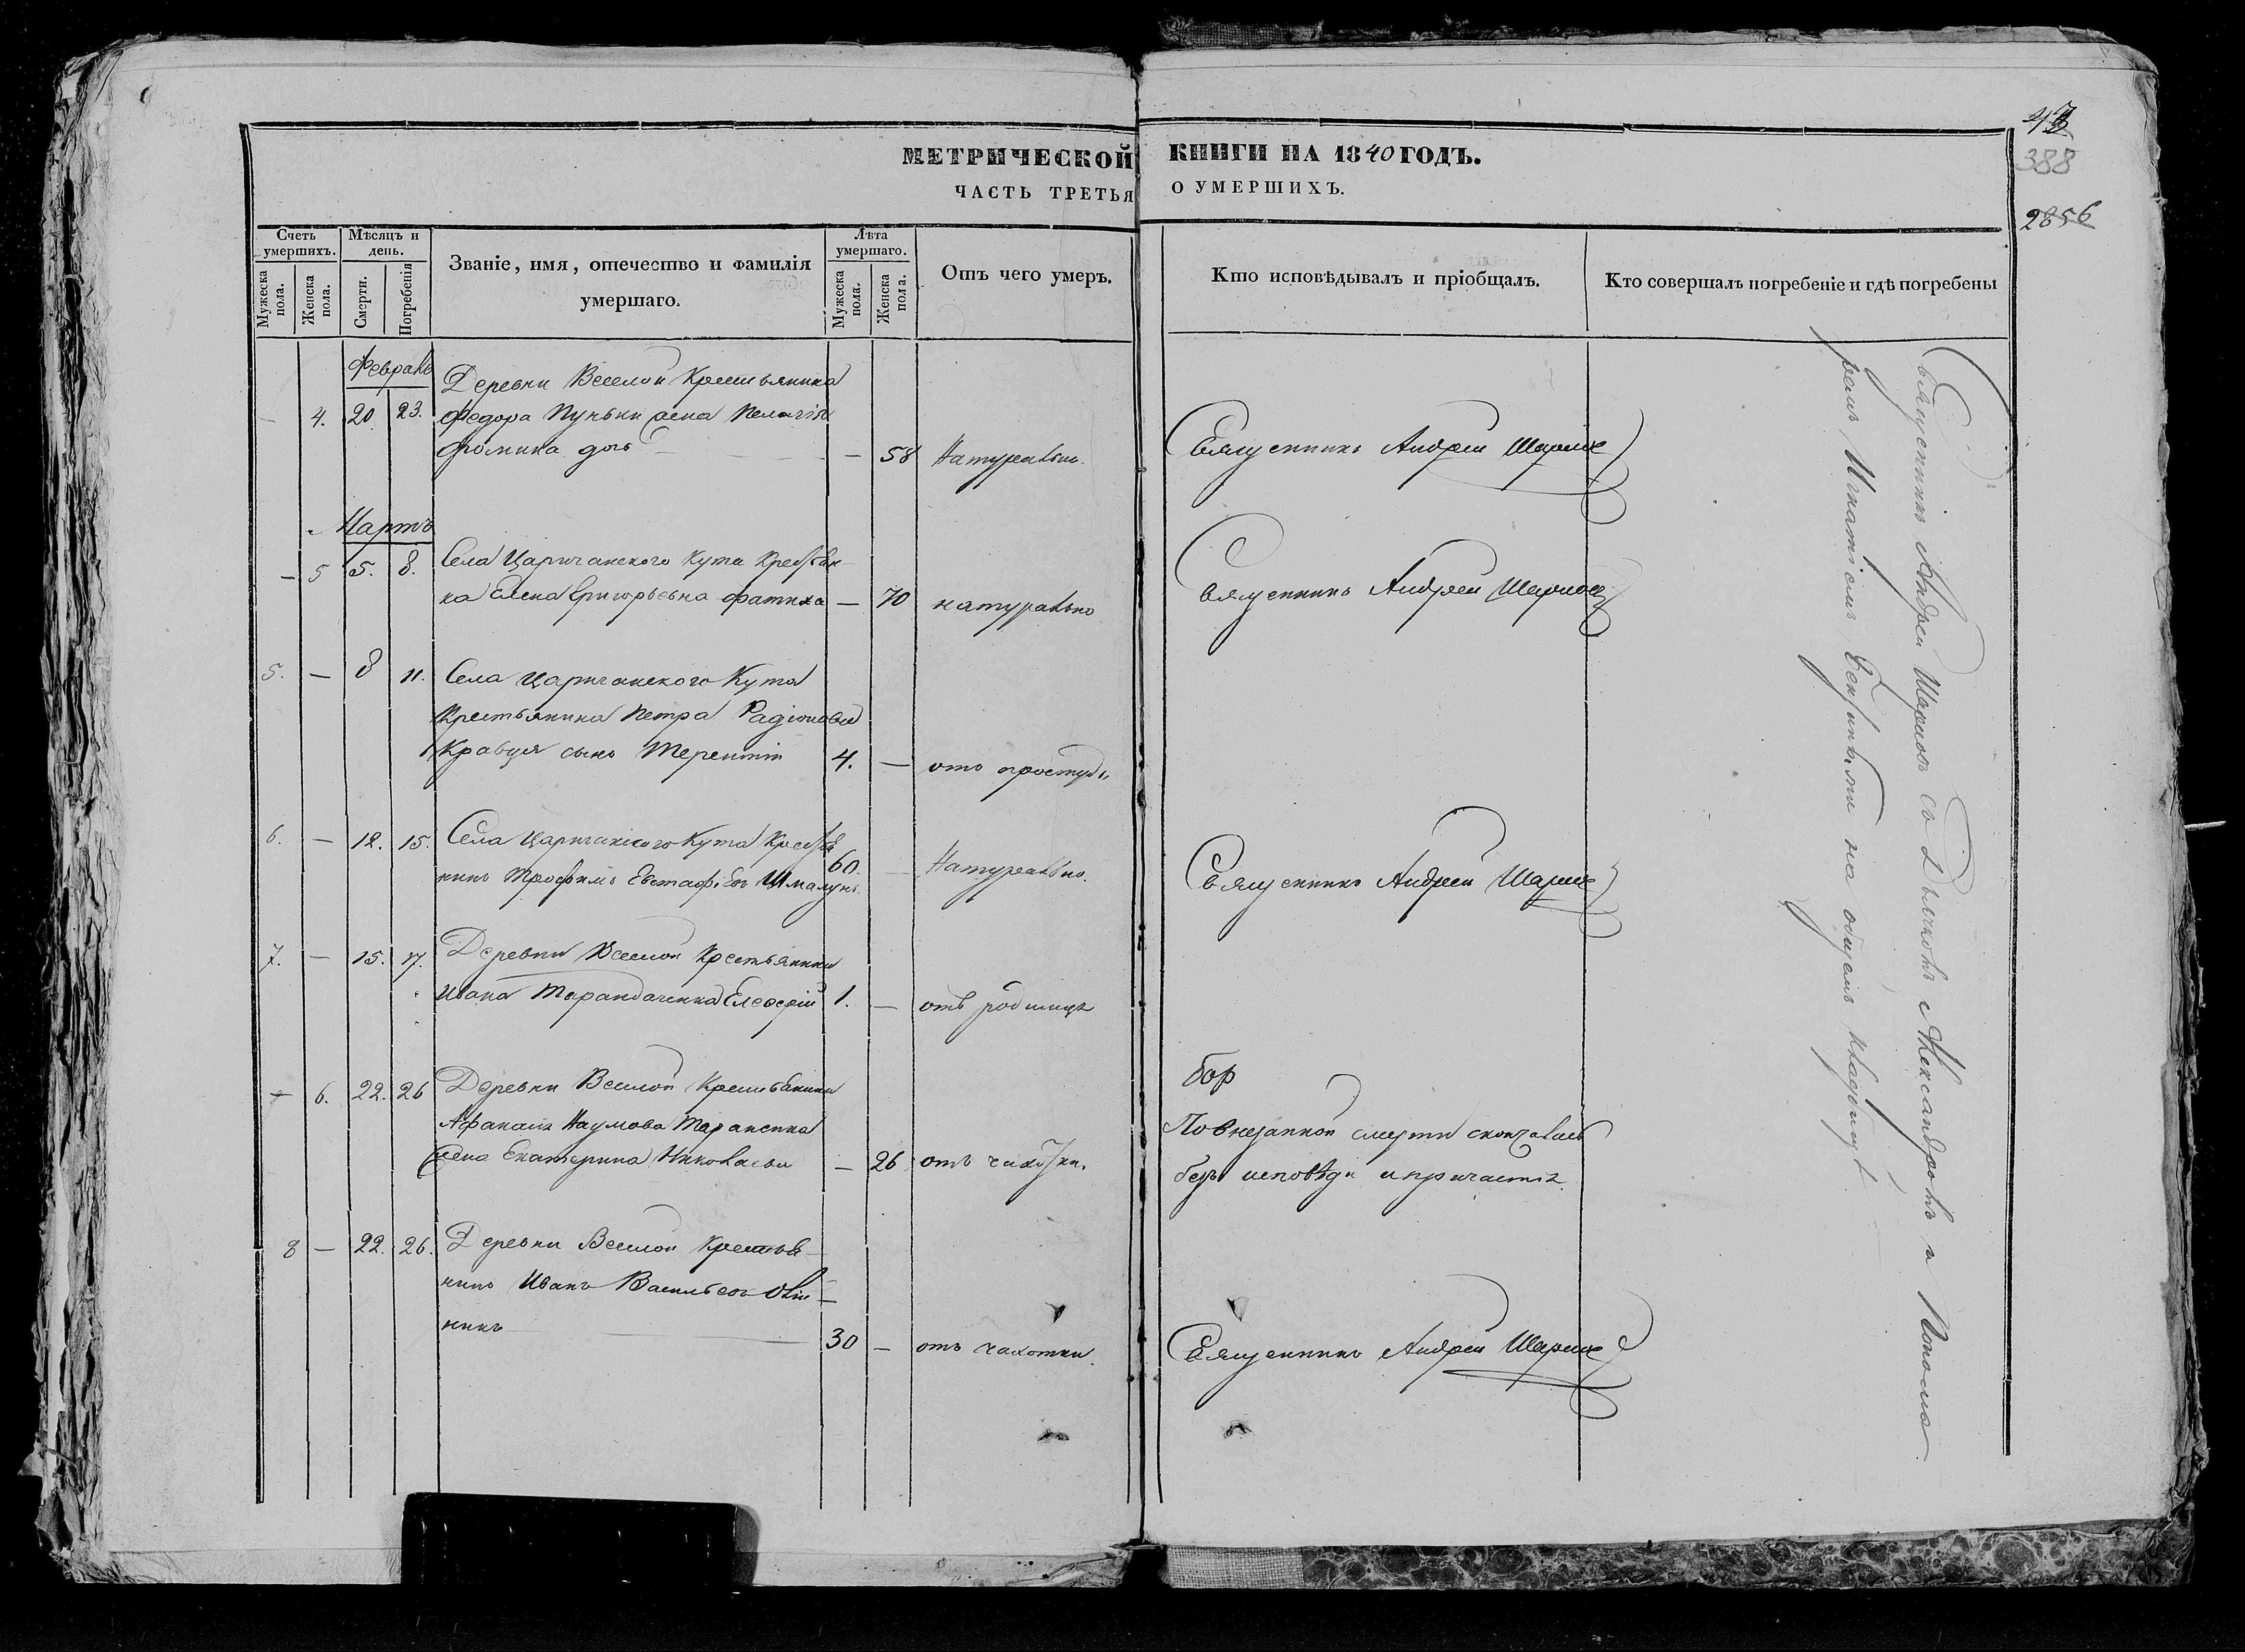 МЕТРИЧЕСКОЙ КНИГИ НА 1840 ГОДЪ.
ЧАСТЬ ТРЕТЬЯ О УМЕРШИХЪ.
388
2856
Счетъ умершихъ.
Мужеска пола.
Женска пола.
Мѣсяцъ и день.
Смерти.
Погребенія
Званіе, имя, отечество и фамилія умершаго.
Лѣта умершаго.
Мужеска пола.
Женска пола.
Отъ чего умеръ.
Кто исповѣдывалъ и пріобщалъ.
Кто совершалъ погребеніе и гдѣ погребены
Февраль
Деревни Веселой Крестьянина
— 4. 20 23. Федора Пуньки жена Пелагія
Фомина дочь — 58 Натурально.
Священникъ Андрей
Мартъ
— 5 5. 8. Села Царичанского Кута Крестьян
ка Елена Григорьевна — 70 натурально
Священникъ Андрей
5. — 8 11. Села Царичанского Кута
Крестьянина Петра Радіонова
Кравця сынъ Терентій 4. — отъ простуды
6. — 12. 15. Села Царичанского Кута Крестья
нинъ Трофимъ Евстафіевъ Шмалунъ 60. — Натурально.
Священникъ Андрей
7. — 15. 17. Деревни Веселой Крестьянина
Ивана Тарандаченка Елевферій 1. — отъ родимца
— 6. 22. 26 Деревни Веселой Крестьянина
Афанасія Наумова Тараненка
жена Екатерина Николаева — 26 отъ чахотки.
бор
По внезапной смерти скончалась
безъ исповѣди и причастія
8 — 22. 26. Деревни Веселой Крестья
нинъ Иванъ Васильевъ Олій
никъ 30 — отъ чахотки.
Священникъ Андрей
Священникъ Андрей съ Дьячкомъ Александромъ и Понома
ремъ Игнатіемъ на общемъ кладбищѣ